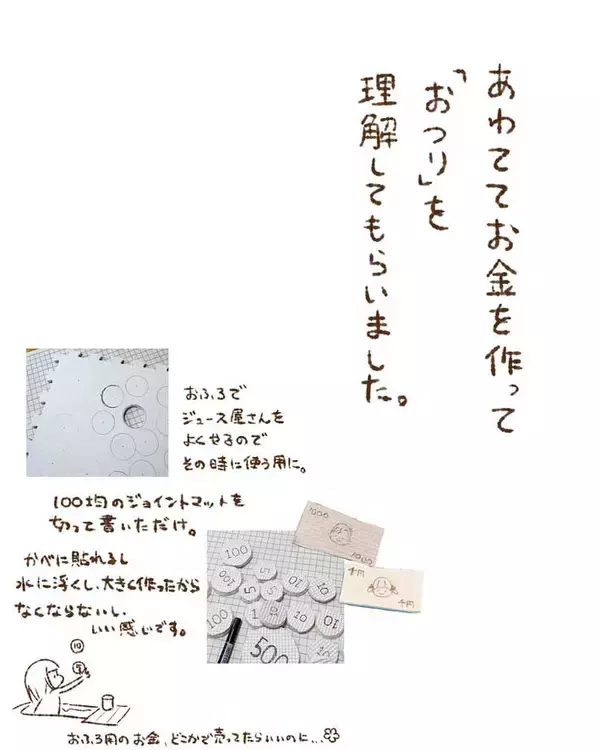 あわててお金を作って
「おつり」を
理解してもらいました。
おふろで
ジュース屋さんを
よくやるので
その時に使う用に。
100均のジョイントマットを
切って書いただけ。
かべに貼れるし
水に浮くし、大きく作ったから
なくならないし、
いい感じです。
1000
1000
千円
千円
100
5
10
10
100
5
5
100
1
10
10
500
10
おふろ用のお金、どこかで売ってたらいいのに…